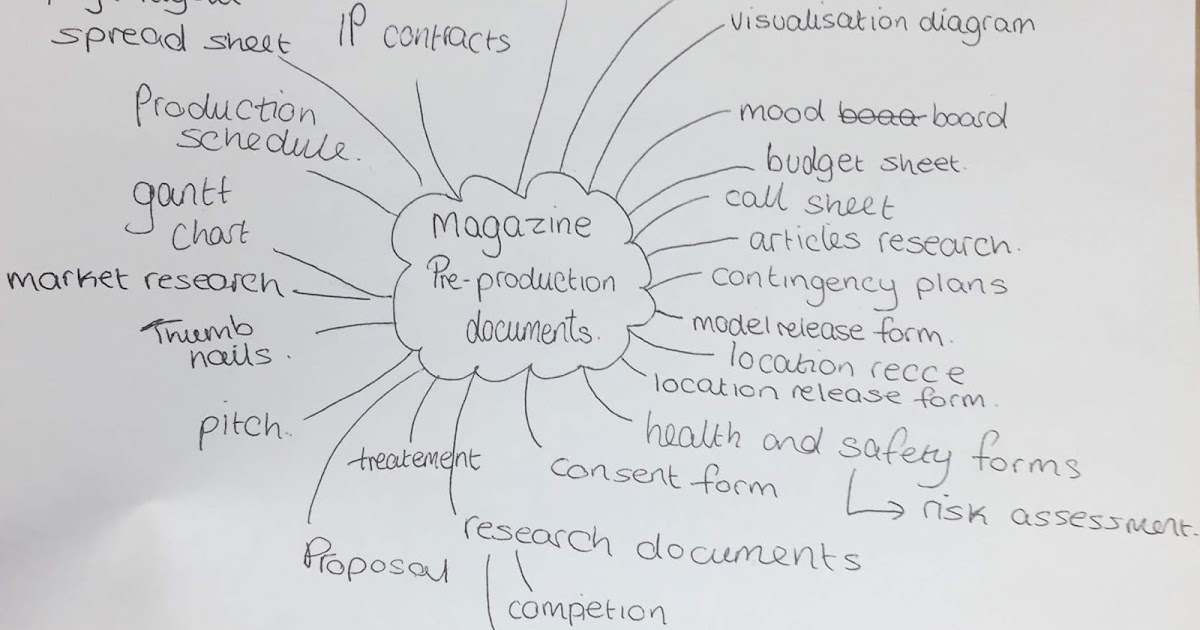 spread sheet
IP contracts
visualisation diagram
Production
schedule.
mood board
budget sheet.
call sheet
gantt
chart
articles research.
market research
contingency plans
Thumb
nails.
model release form.
location recce
location release form.
pitch.
health and safety forms
risk assessment.
treatement
consent form
research documents
Proposal
competion
Magazine
Pre-production
documents.